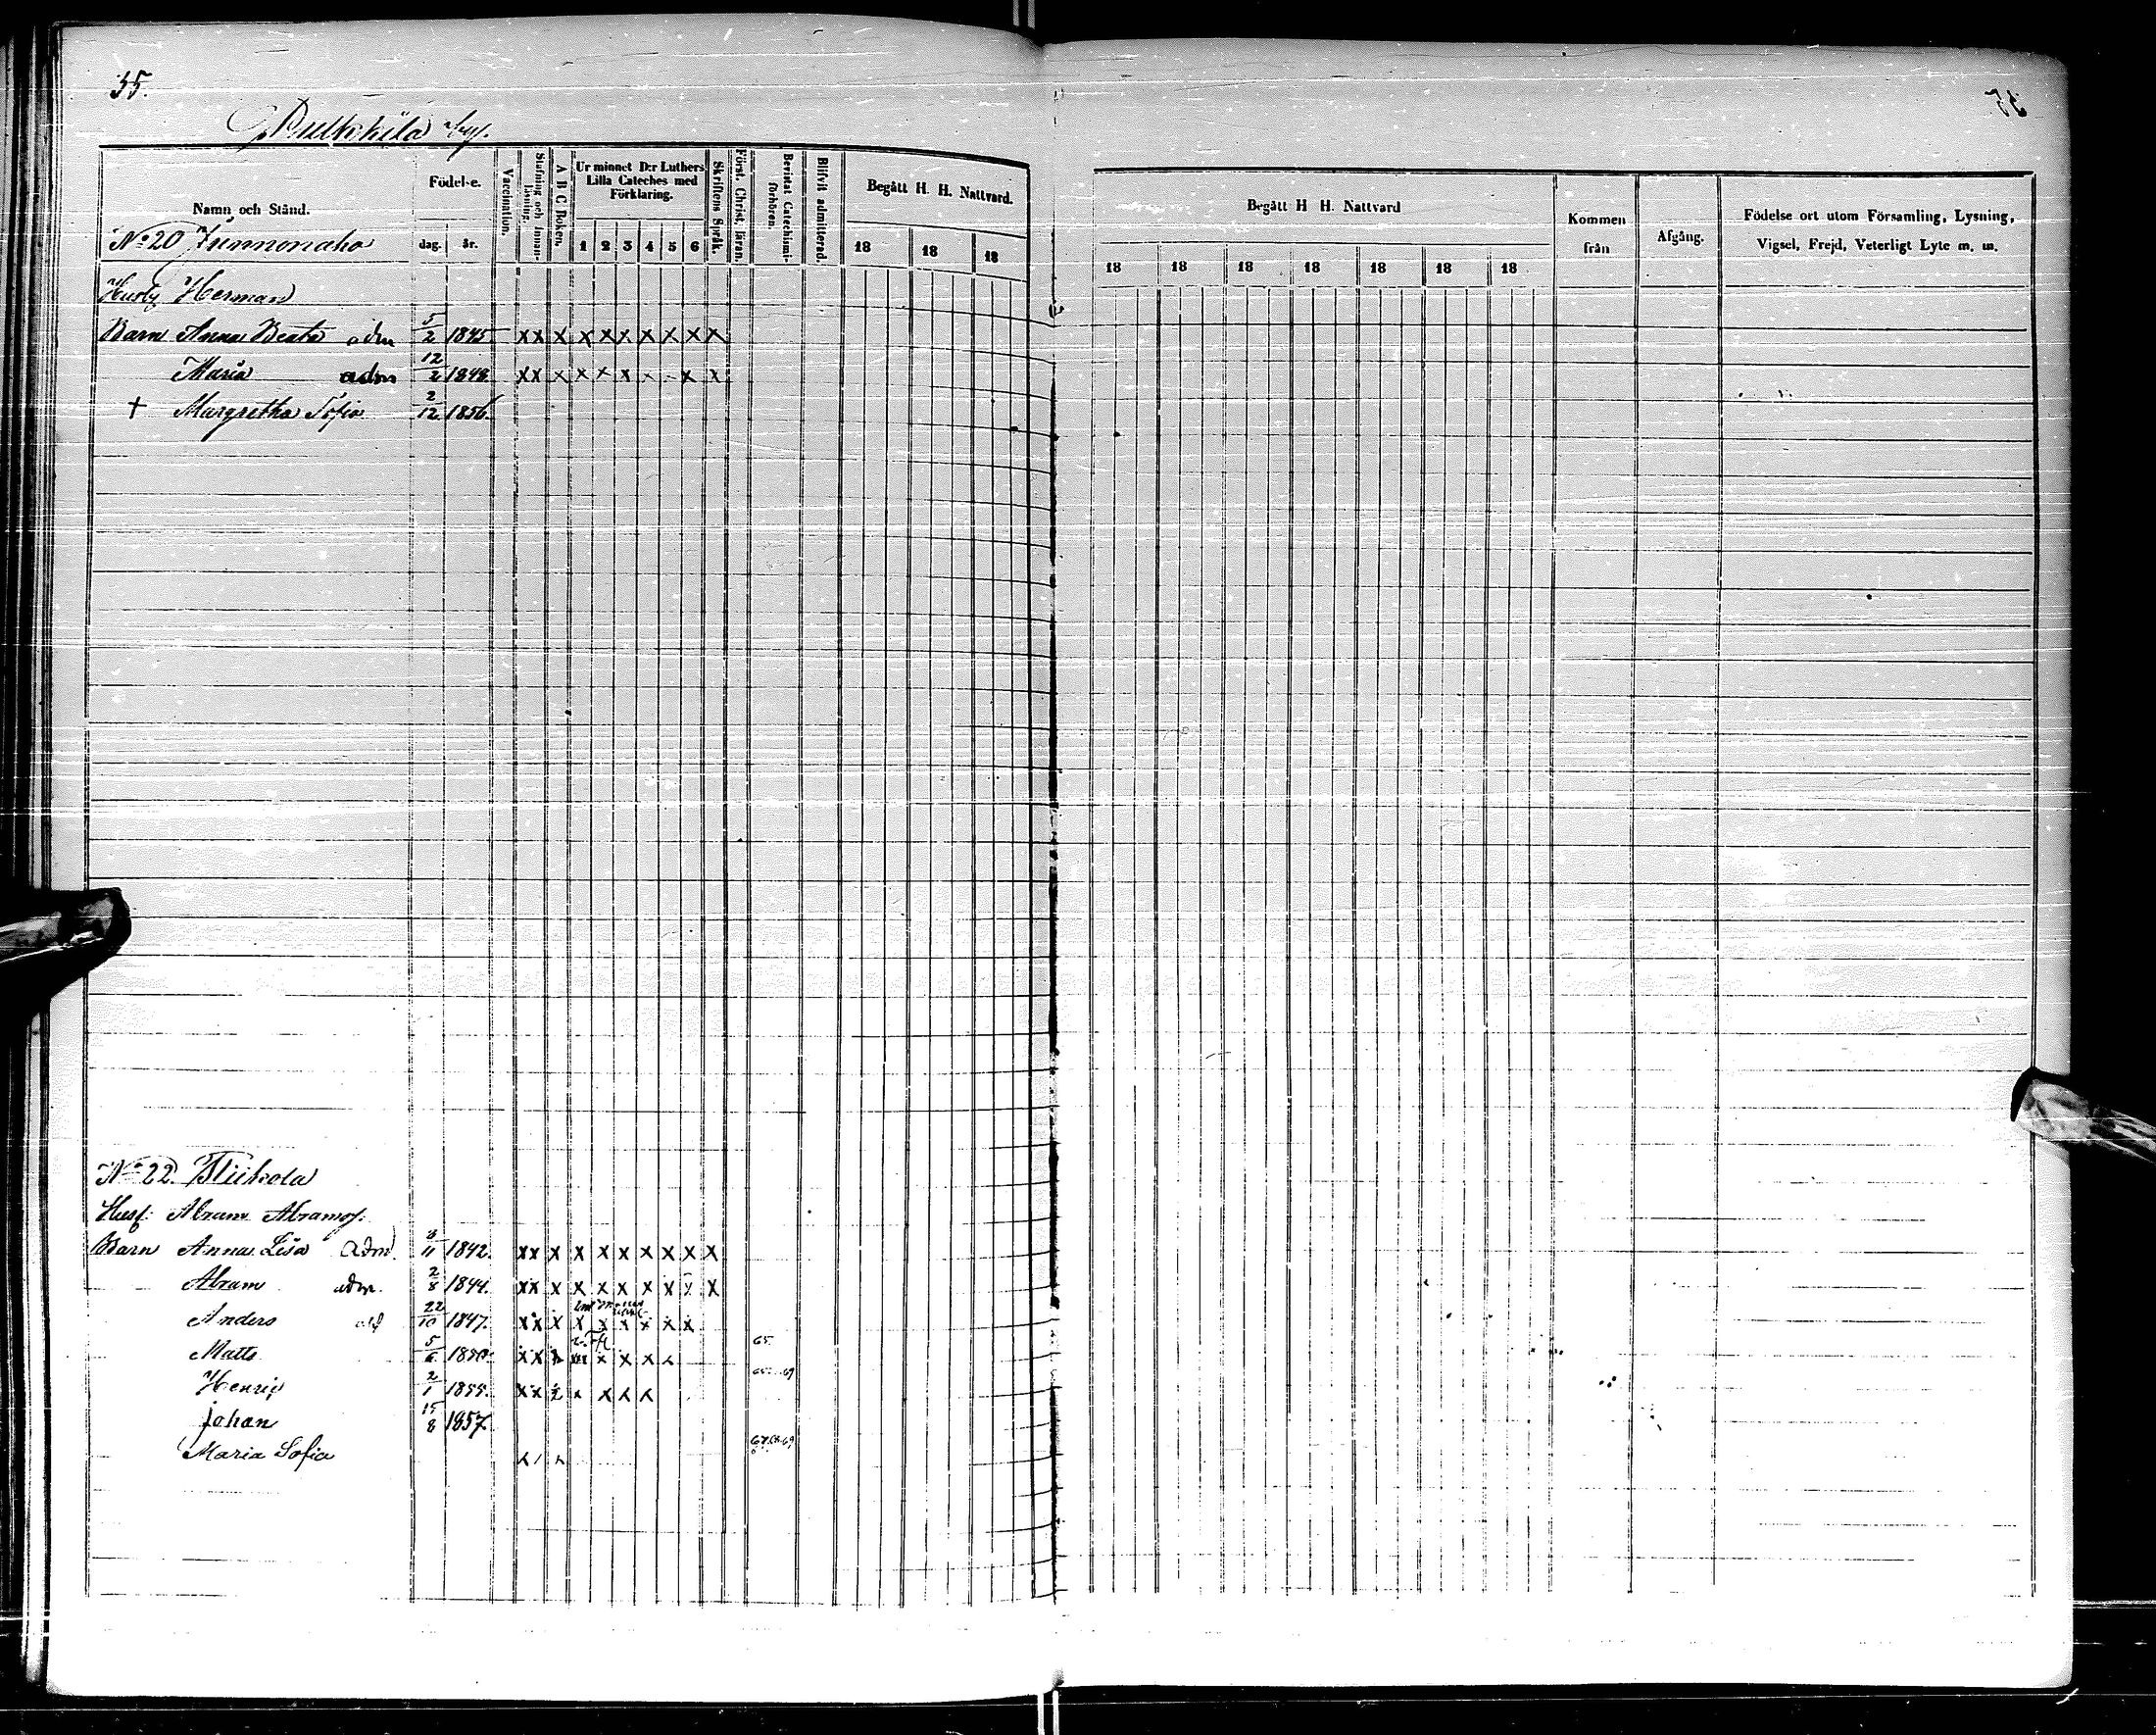 35.
35
Pulkkila by.
Namn och Stånd.
Födelse.
dag. år.
Vaccination.
Stafning och Innanläsning.
A B C Boken.
Ur minnet D:r Luthers Lilla Cateches med Förklaring.
1 2 3 4 5 6
Skriftens Språk.
Först. Christ. läran.
Bevistat Catechismiförhören.
Blifvit admitterad.
Begått H. H. Nattvard.
18 18 18
Begått H H. Nattvard
18 18 18 18 18 18 18
Kommen från
Afgång.
Födelse ort utom Församling, Lysning,
Vigsel, Frejd, Veterligt Lyte m. m.
No 20 Junnonaho
Herman
Barn Anna Beata adm 5/2 1845 x x x x x x x x x x
Maria adm 12/2 1848 x x x x x x x x x x
† Margretha Sofia 2/12 1856.
No 22.
Husf: Abram Abramsf.
Barn Anna Lisa adm. 1842. x x x x x x x x x x
Abram adm. 2/8 1844. x x x x x x x x x x
Anders 22/10 1847. x x x x x x x x x
Matts 5/6 x x x x x x x 65
Henric 2/1 1855. x x x x x x 69
Johan 15/8 1857.
Maria Sofia 67.68.69